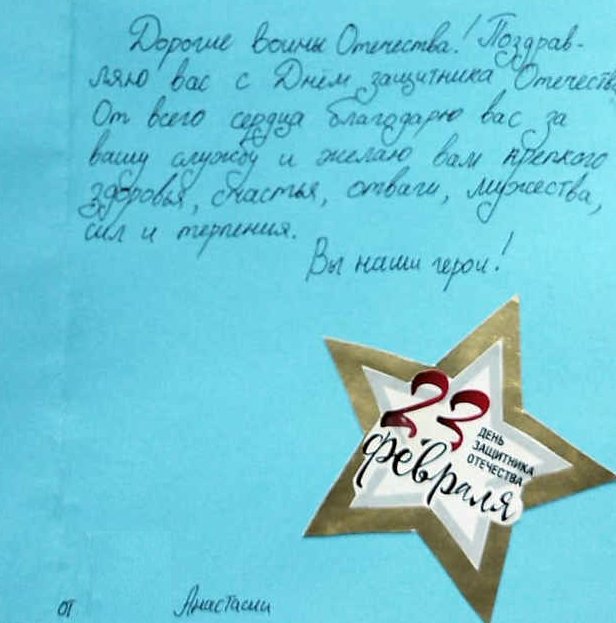 Дорогие воины Отечества! Поздрав-
ляю вас с Днём защитника Отечеств
От всего сердца благодарю вас за
вашу службу и желаю вам крепкого
здоровья, счастья, отваги, мужества,
сил и терпения.
Вы наши герои!
23
февраля
ДЕНЬ
ЗАЩИТНИКА
ОТЕЧЕСТВА
от Анастасии